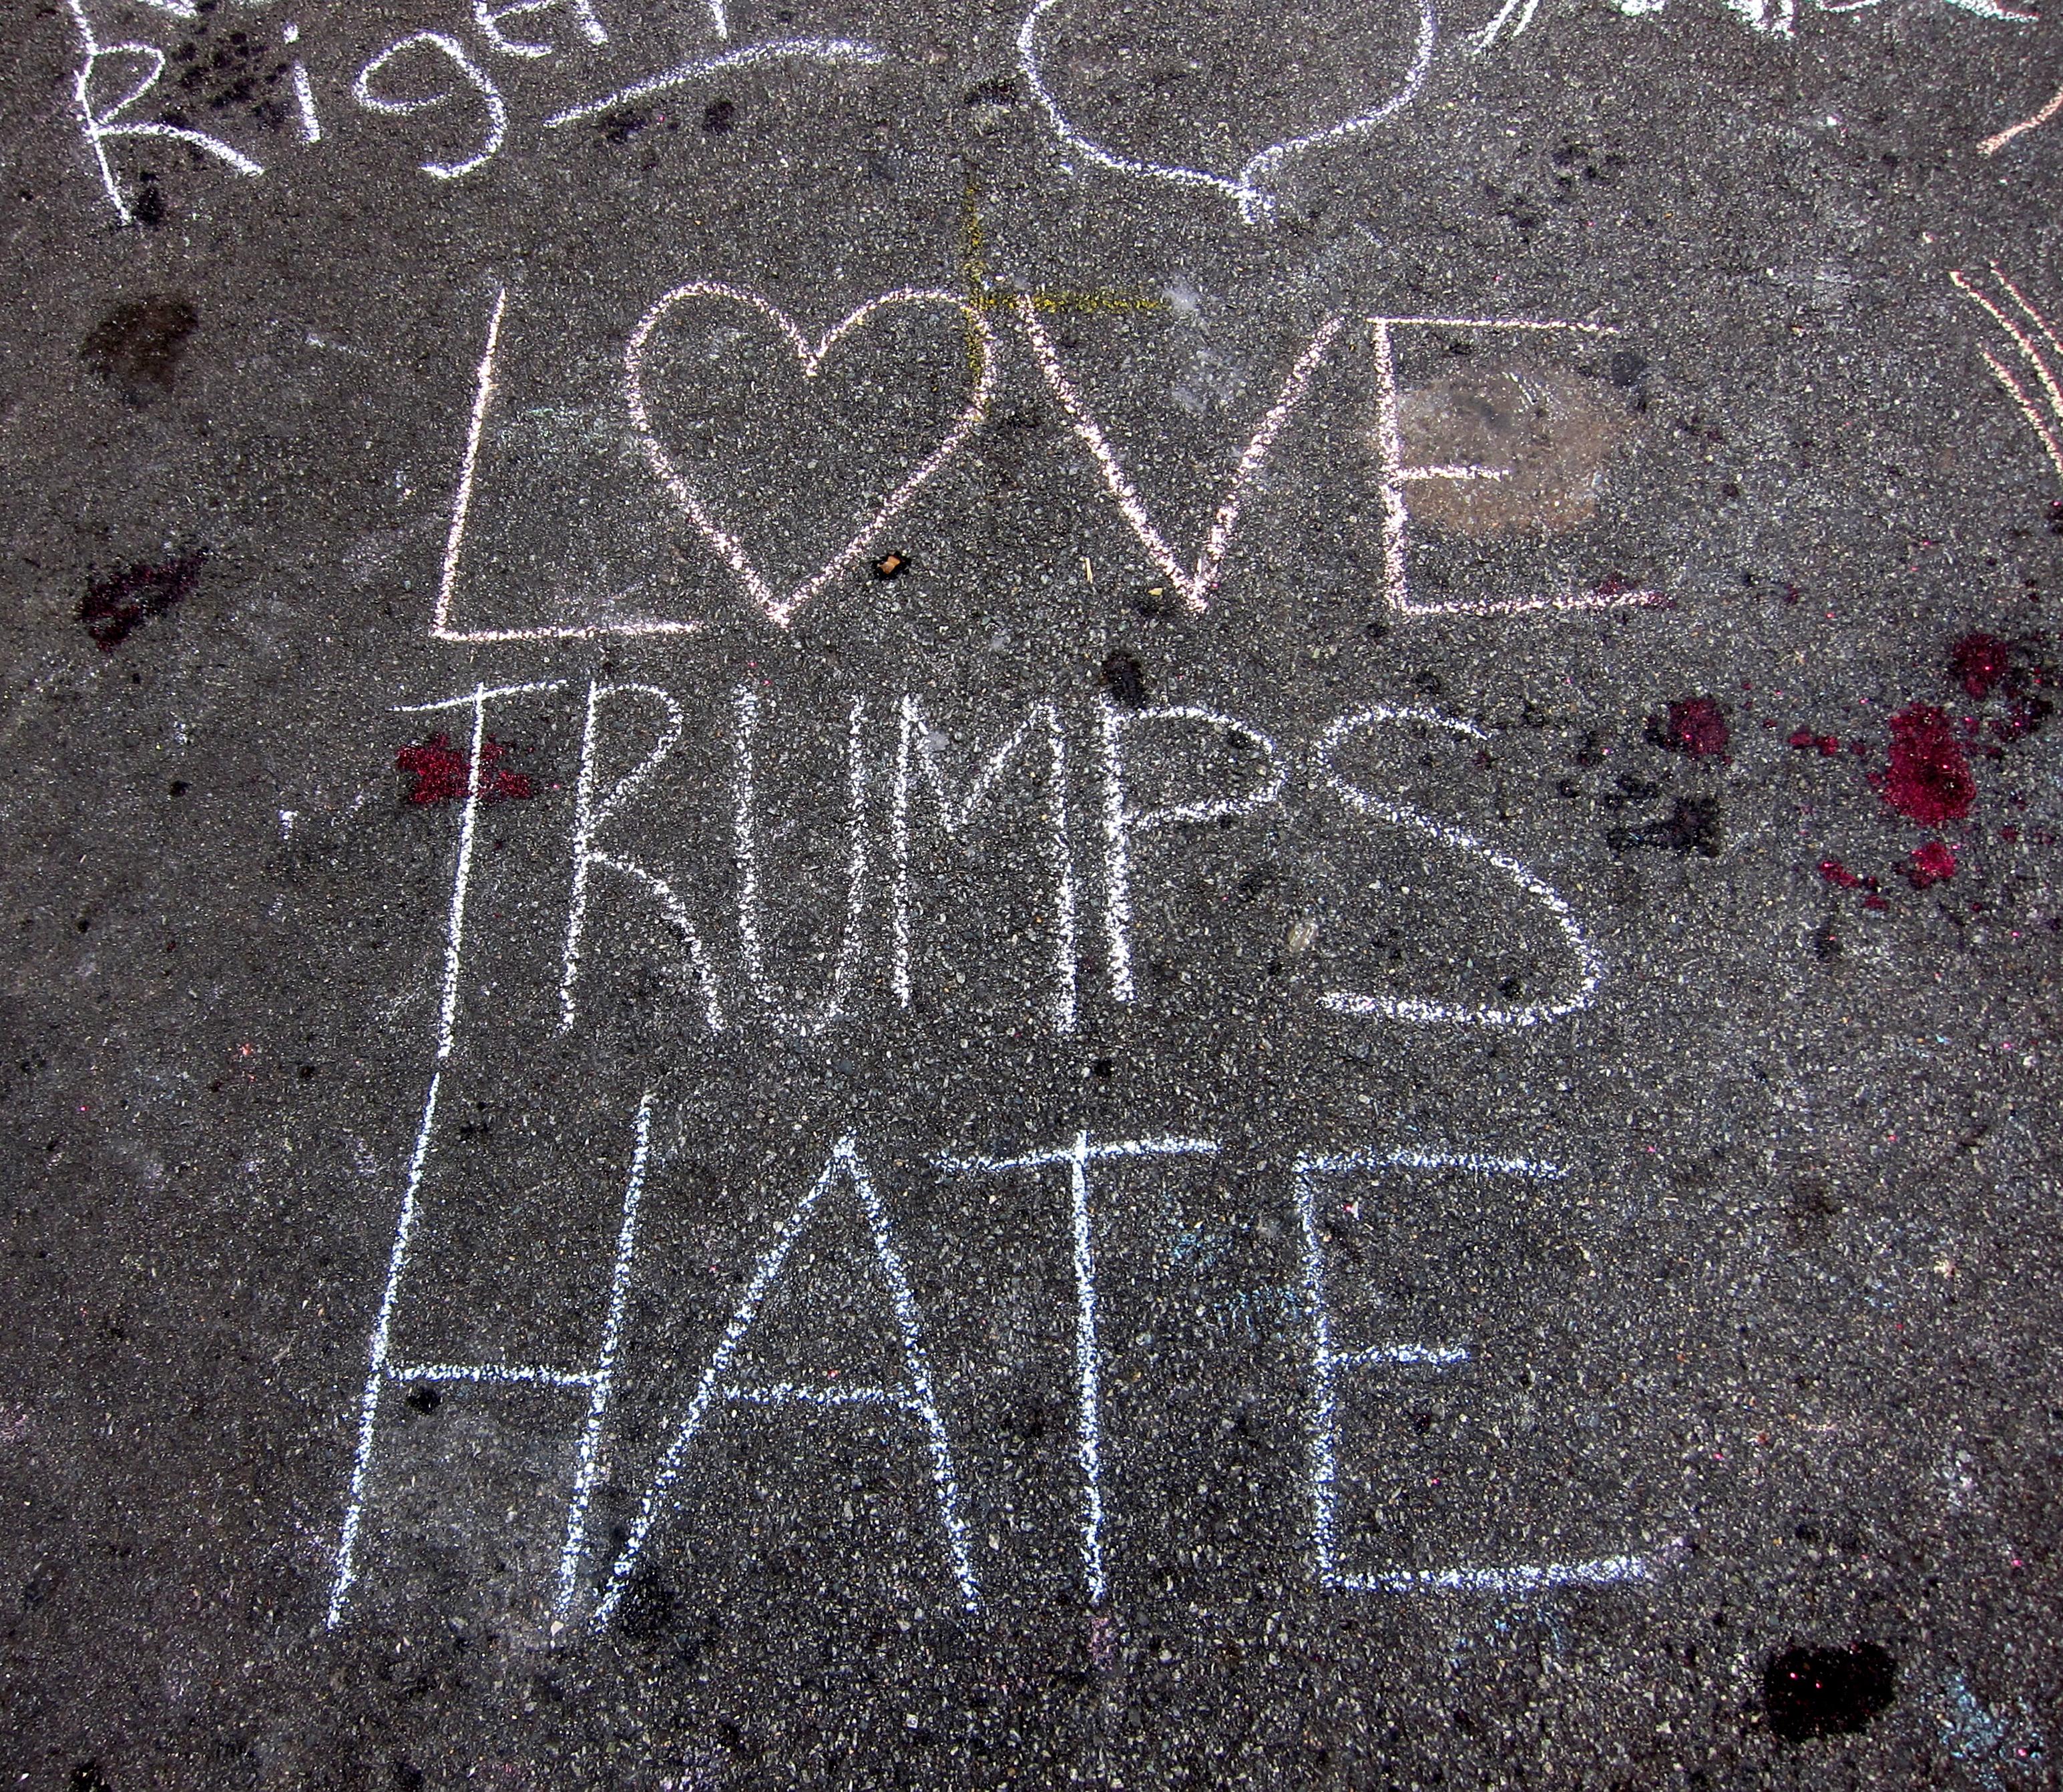 Right
L♡VE
TRUMPS
HATE